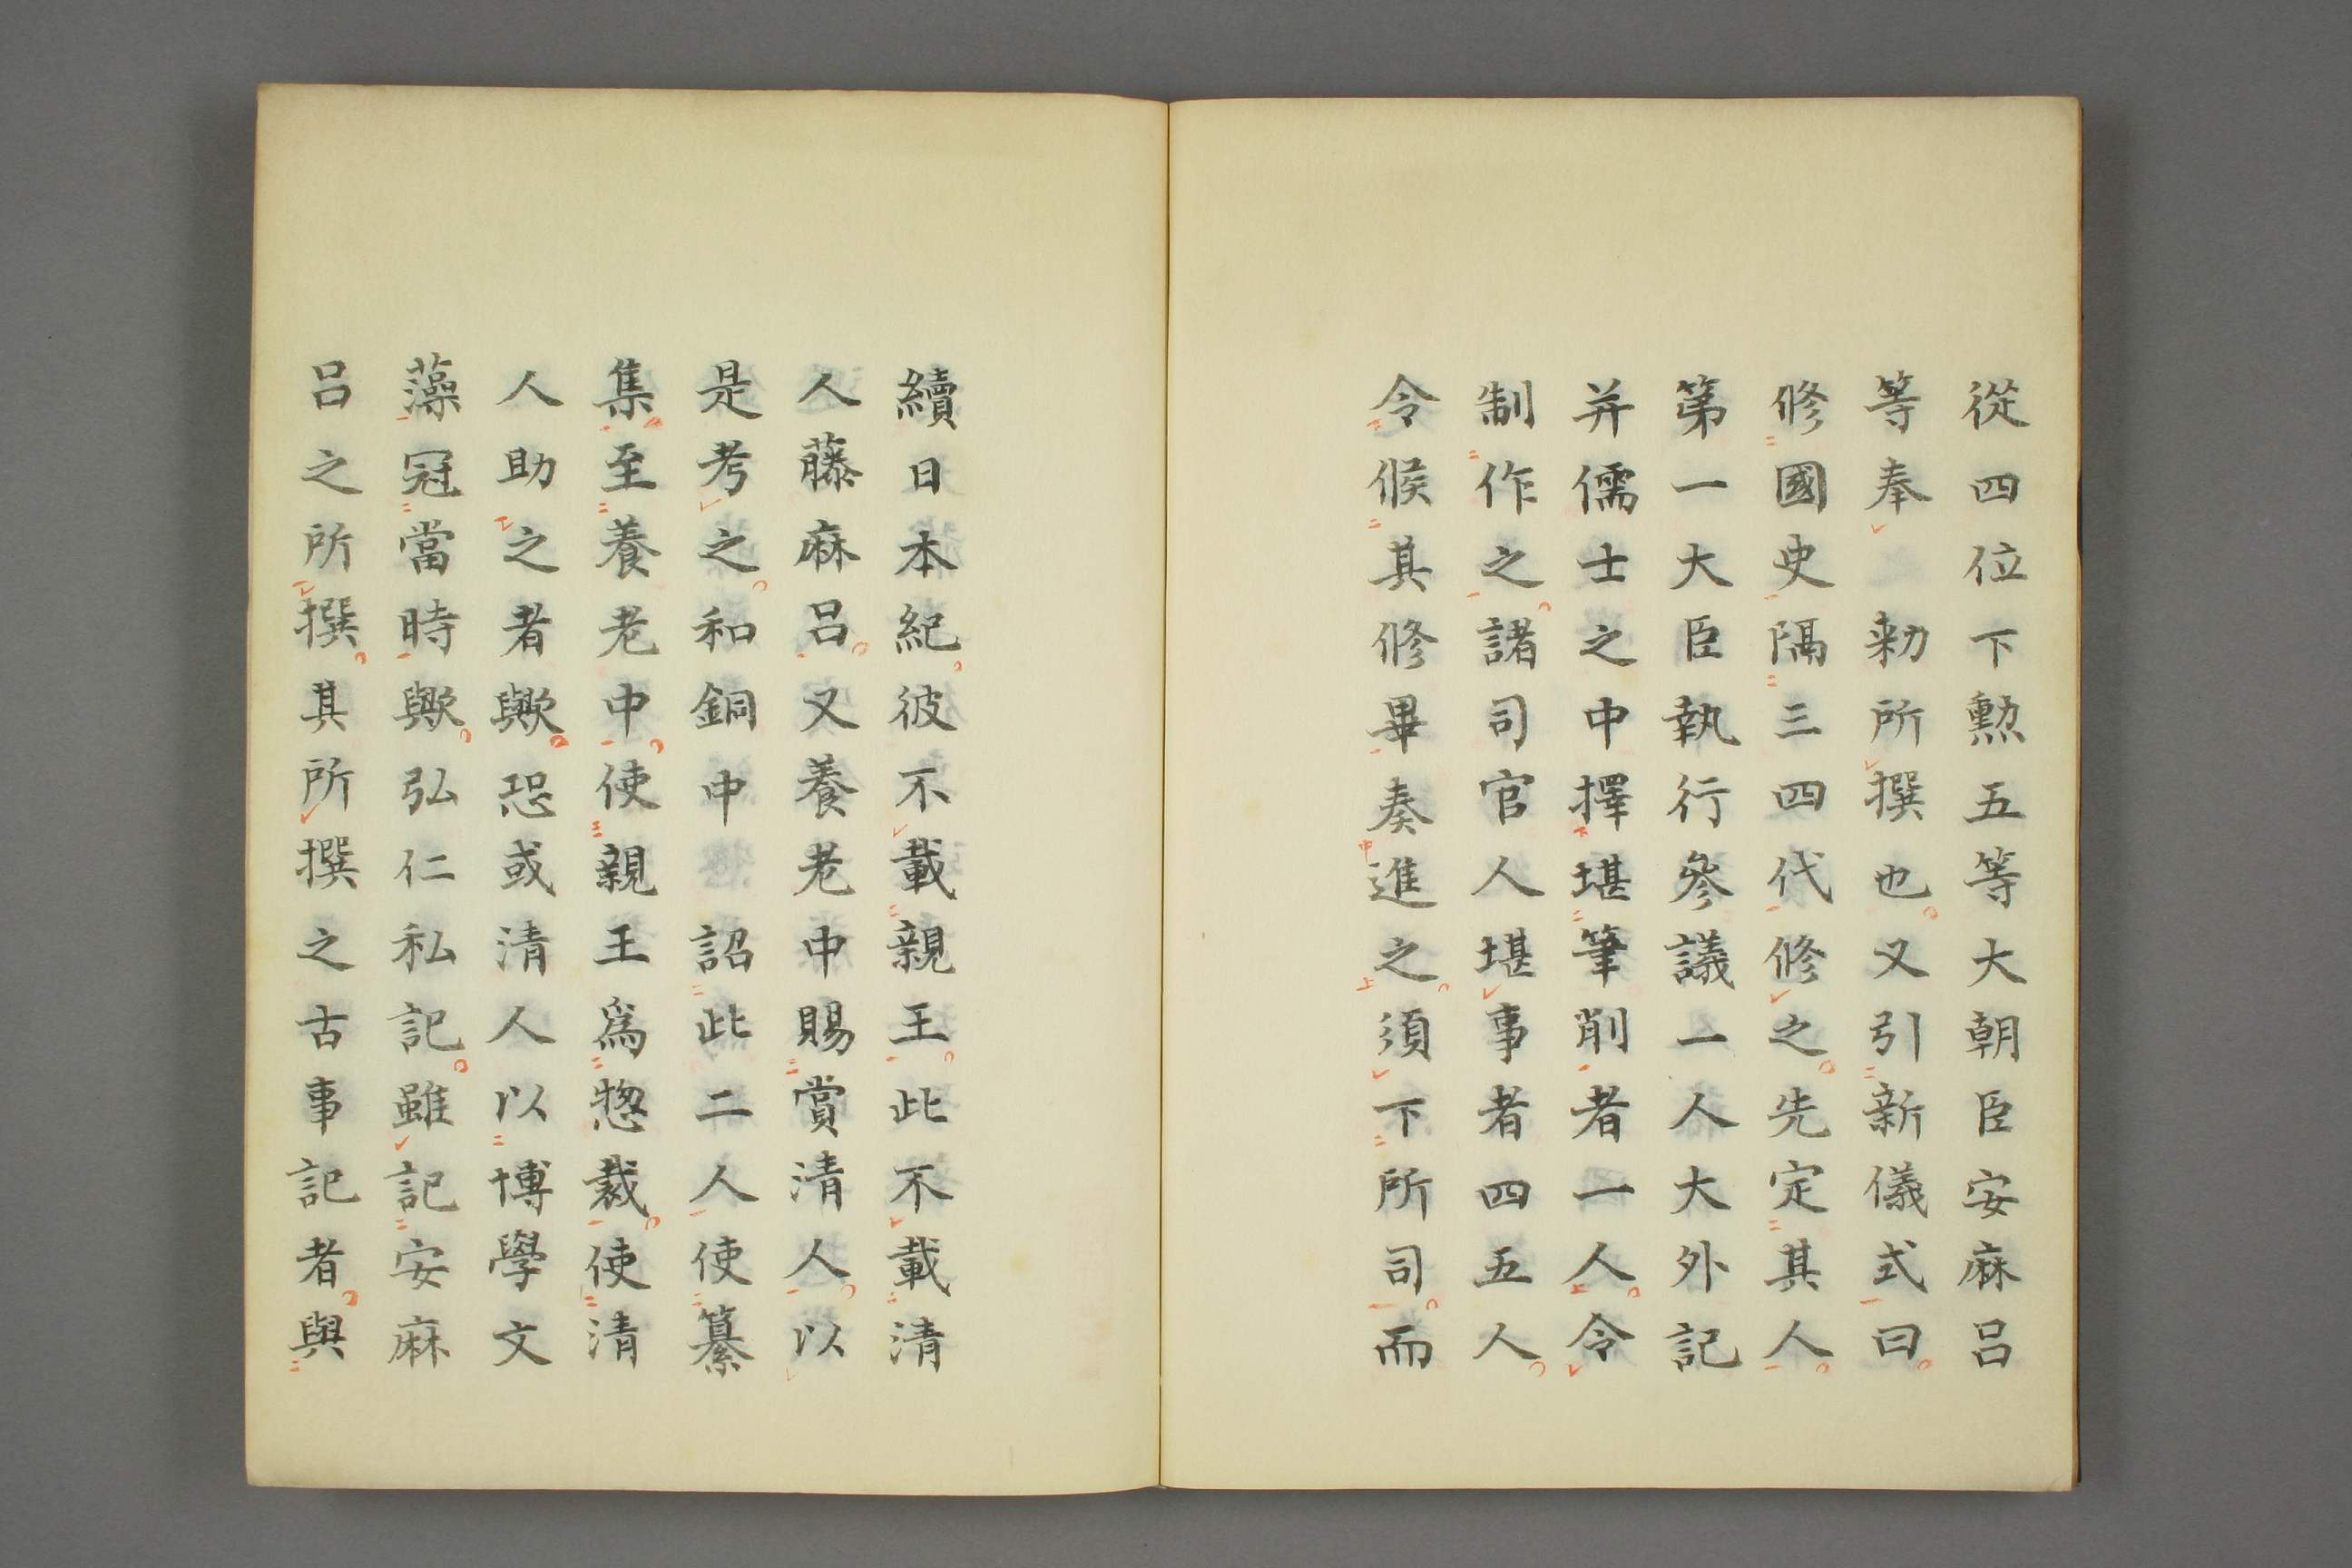 從四位下勲五等大朝臣安麻呂
等奉　勅所撰也。又引新儀式曰。
修國史隔三四代修之。先定其人。
第一大臣執行參議一人大外記
并儒士之中擇堪筆削者一人。令
制作之。諸司官人堪事者四五人。
令候其修畢奏進之。須下所司。而
續日本紀。彼不載親王。此不載清
人藤麻呂。又養老中賜賞清人。以
是考之。和銅中　詔此二人使纂
集。至養老中。使親王爲惣裁。使清
人助之者歟。恐或清人以博學文
藻冠當時歟。弘仁私記。雖記安麻
呂之所撰。其所撰之古事記者。與